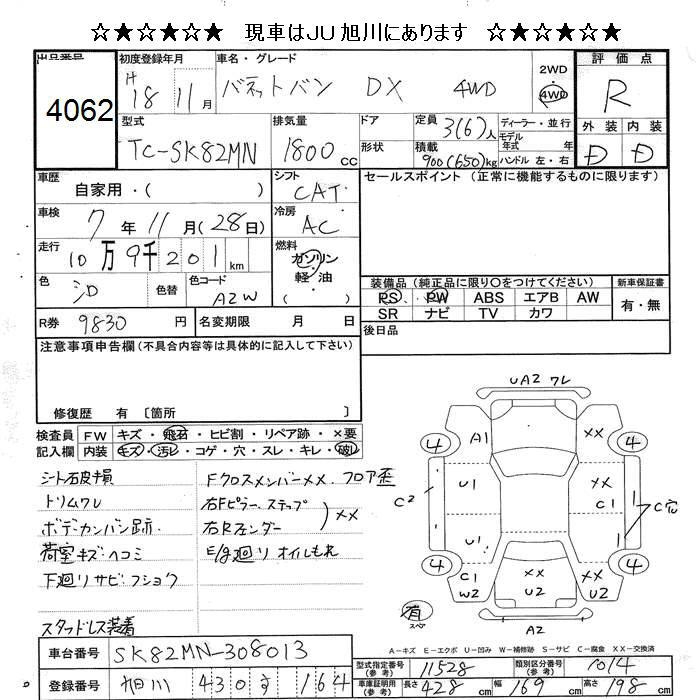 ☆★☆★☆ 現車はJU旭川にあります ☆★☆★☆
出品番号
4062
初度登録年月
H 18 11月
車名・グレード
バネットバン DX 4WD
2WD
・
4WD
評価点
R
外装 内装
D D
型式
TC-SK82MN
排気量
1800 cc
ドア
形状
定員 3(6)人
積載 900(650)kg
ディーラー・並行
モデル
年式 年
ハンドル 左・右
車歴
自家用・( )
シフト
CAT
セールスポイント (正常に機能するものに限ります)
車検
7年11月(28日)
冷房
AC
走行
10万9千201km
燃料
ガソリン
・
軽油
色
シロ
色替
色コード
A2W
装備品 (純正品に限り○をつけてください)
新車保証書
PS PW ABS エアB AW
SR ナビ TV カワ
有・無
R券 9830 円
名変期限 月 日
後日品
注意事項申告欄(不具合内容等は具体的に記入して下さい)
修復歴 有 〔箇所 〕
検査員
記入欄
FW キズ・飛石・ヒビ割・リペア跡・×要
内装 キズ・汚レ・コゲ・穴・スレ・キレ・破レ
シート石皮損
トリムワレ
ボデーカンバン跡.
荷室キズ・ヘコミ
下廻リサビ・フショク
スタッドレス装着
Fクロスメンバー××. フロア歪
右Fピラー. ステップ
右Rフェンダー
)××
E/g廻リオイルもれ
UA2 ワレ
4 A1 ×× 4
C2 U1 C1 C穴
U1
4 C1 W2 ×× U2 ×× U2 4
有
スペア
A2
A-キズ E-エクボ U-凹み W-補修跡 S-サビ C-腐食 ××-交換済
車台番号 SK82MN-308013
登録番号 旭川 430 す 164
型式指定番号
(参考)
11528
類別区分番号
(参考)
1014
車庫証明用
(参考)
長さ 428 cm 幅 169 cm 高さ 198 cm